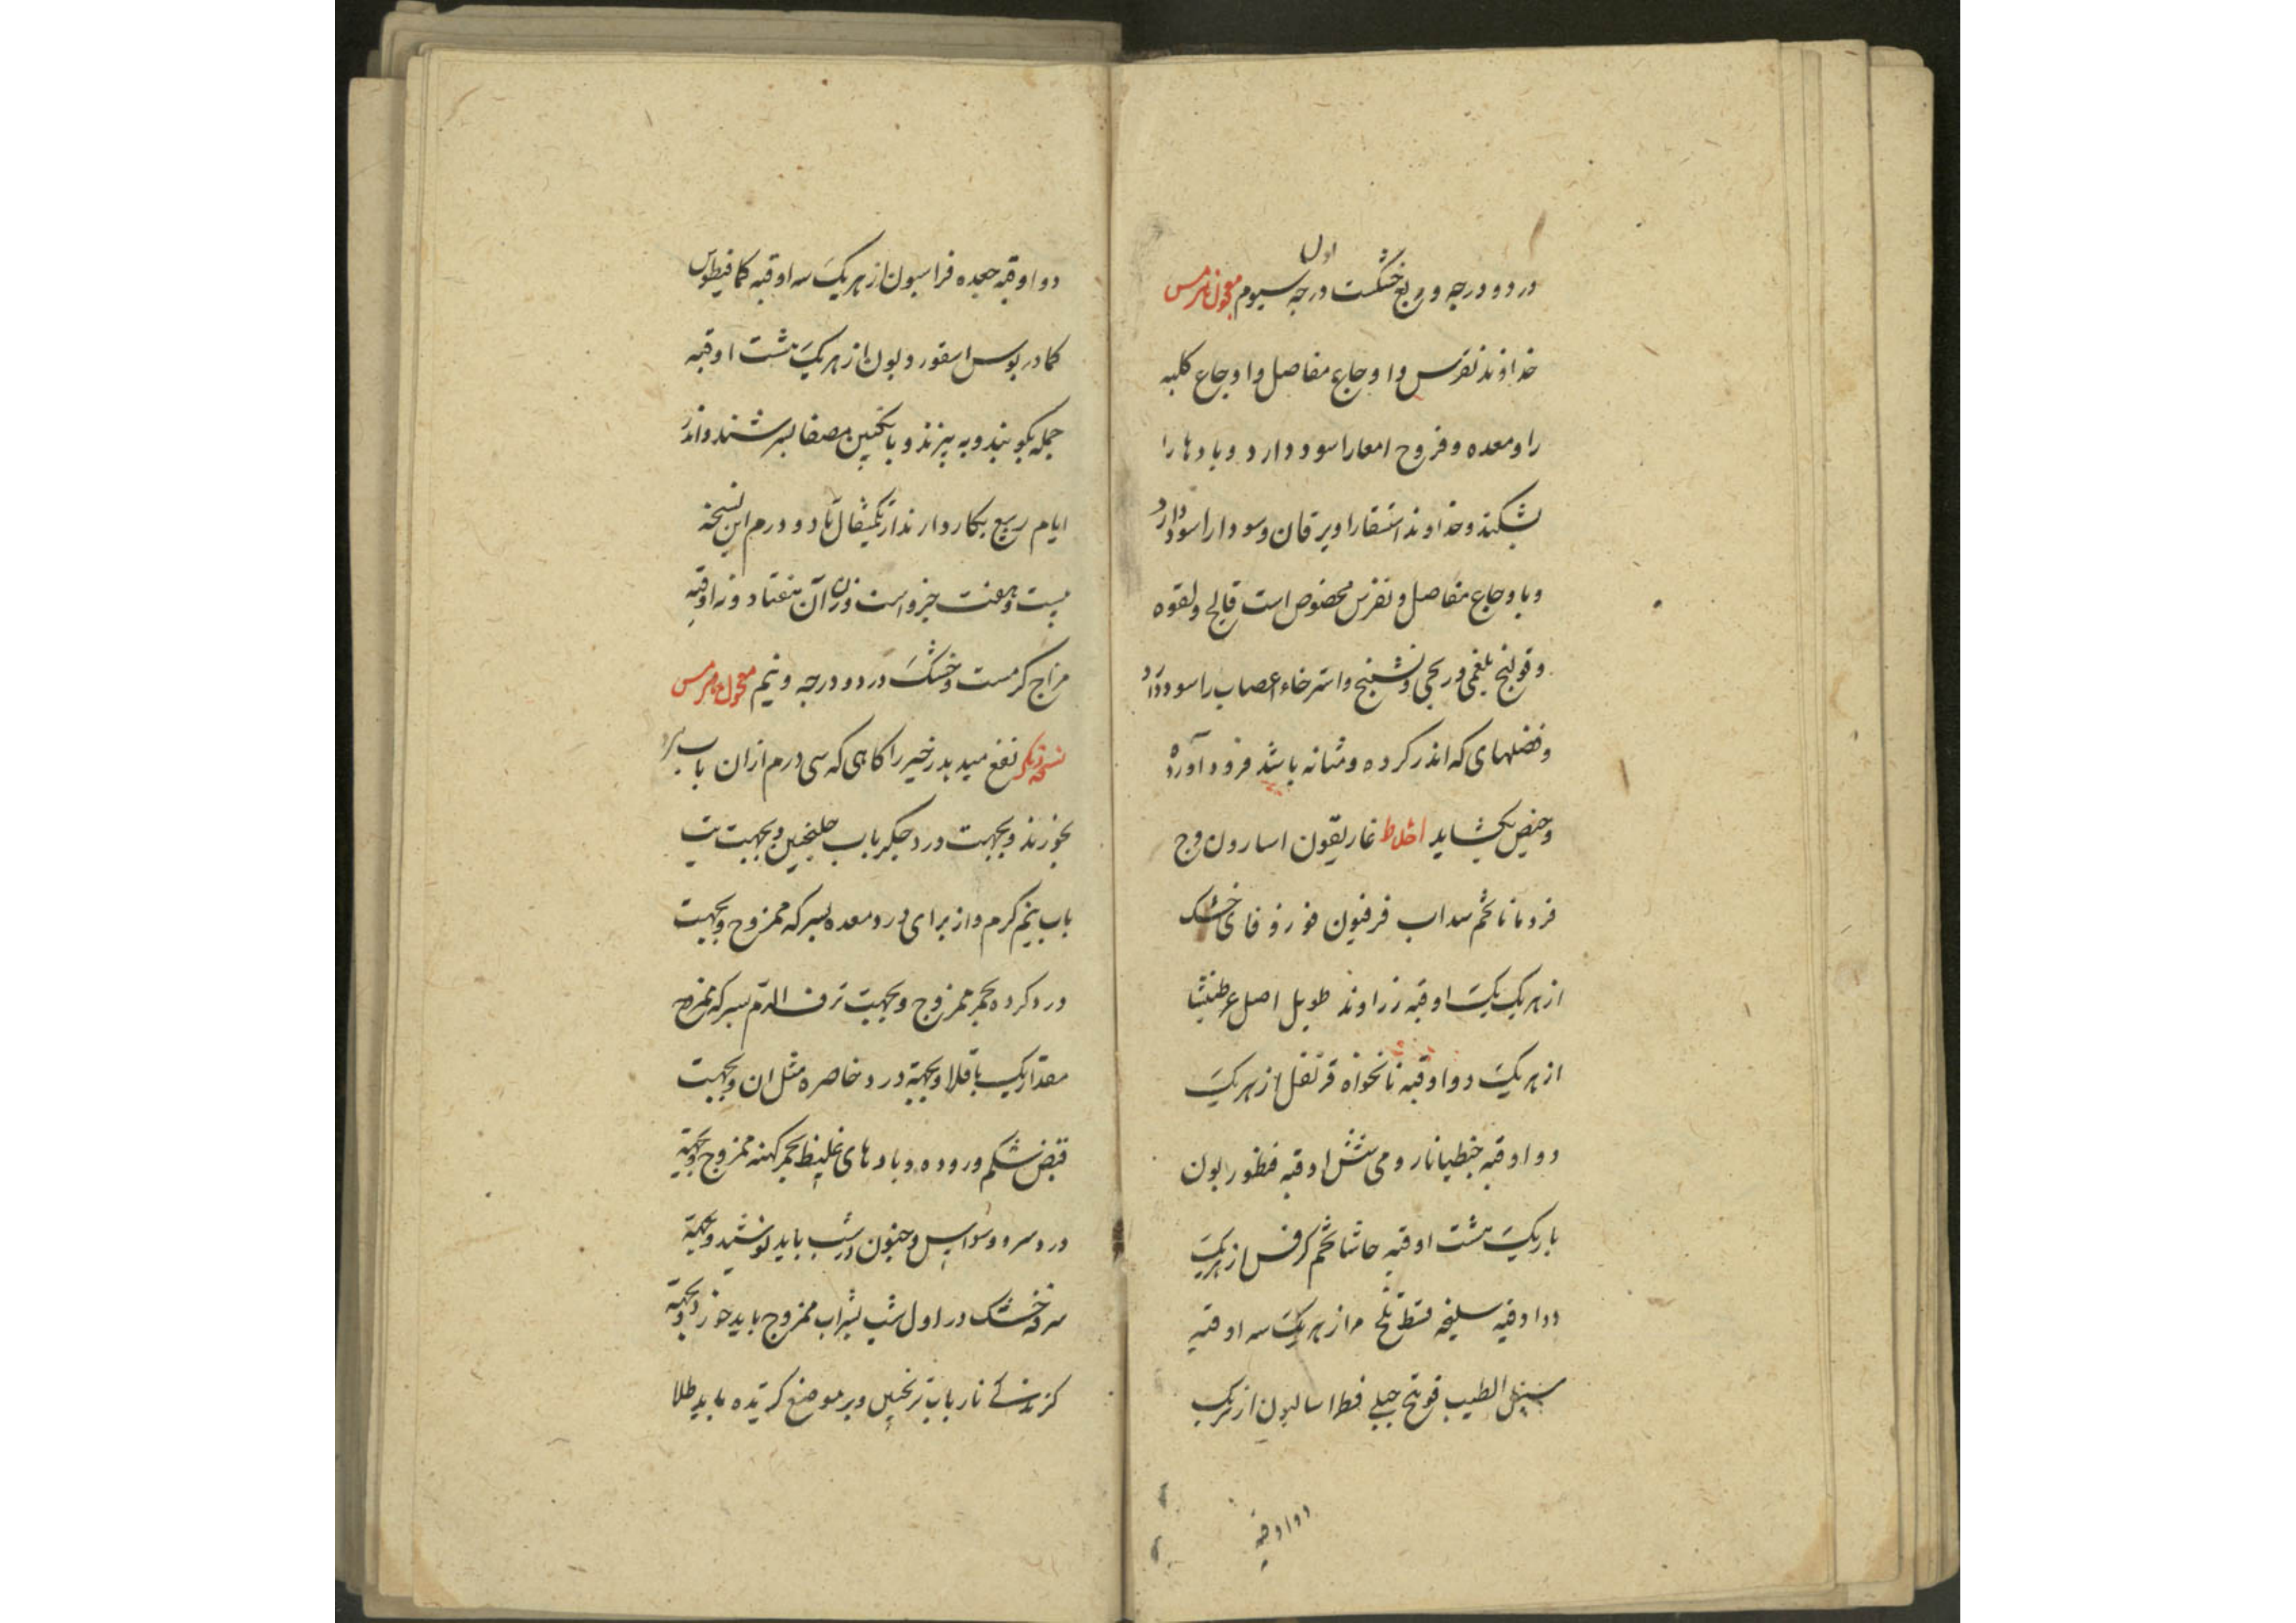 اول
در دو درجه و ربع خشکست درجه سیوم معجون هرمس
خداوند نقرس و اوجاع مفاصل و اوجاع کلیه
را و معده و قروح امعا را سود دارد و بادها را
بشکند و خداوند استسقا را و یرقان و سودا را سود دارد
و باوجاع مفاصل و نقرس مخصوص است فالج و لقوه
و قولنج بلغمی و ریحی و تشنج و استرخاء اعصاب را سود دارد
و فضلهای که اندر کرده و مثانه باشد فرود آورد
و حیض بکشاید اخلاط غاریقون اسارون وج
قردمانا تخم سداب فرفیون زوفای خشک
از هر یک یک اوقیه زراوند طویل اصل عرطنیثا
از هر یک دو اوقیه نانخواه قرنفل از هر یک
دو اوقیه جنطیانا رومی شش اوقیه قنطوریون
باریک هشت اوقیه حاشا تخم کرفس از هر یک
دو اوقیه سلیخه قسط تلخ مر از هر یک سه اوقیه
سنبل الطیب فوتنج جبلی فطراسالیون از هر یک
دو اوقیه
دو اوقیه جعده فراسیون از هر یک سه اوقیه کمافیطوس
کمادریوس اسقوردیون از هر یک هشت اوقیه
جمله بکوبند و به بیزند و بانکبین مصفا بسرشند و اندر
ایام ربیع بکار دارند از یکمثقال تا دو درم این نسخه
بیست و هفت جزو است وزن آن هفتاد و نه اوقیه
مزاج کرمست و خشک در دو درجه و نیم معجون هرمس
نسخه دیکر نفع میدهد زحیر را کاهی که سی درم از ان باب سرد
بخورند و بجهت درد جکر باب جلنجبین و بجهت تب
باب نیم کرم و از برای درد معده بسرکه ممزوج و بجهت
درد کرده بخمر ممزوج و بجهت نزف الدم بسرکه ممزوج
مقدار یک باقلا و بجهة درد خاصره مثل ان و بجهت
قبض شکم و روده و بادهای غلیظ بخمر کهنه ممزوج و بجهة
درد سر و وسواس و جنون در شب باید نوشید و بجهة
سرفه خشک در اول شب بشراب ممزوج باید خورد و بجهة
باب ترنجبین و بر موضع کزیده باید طلا